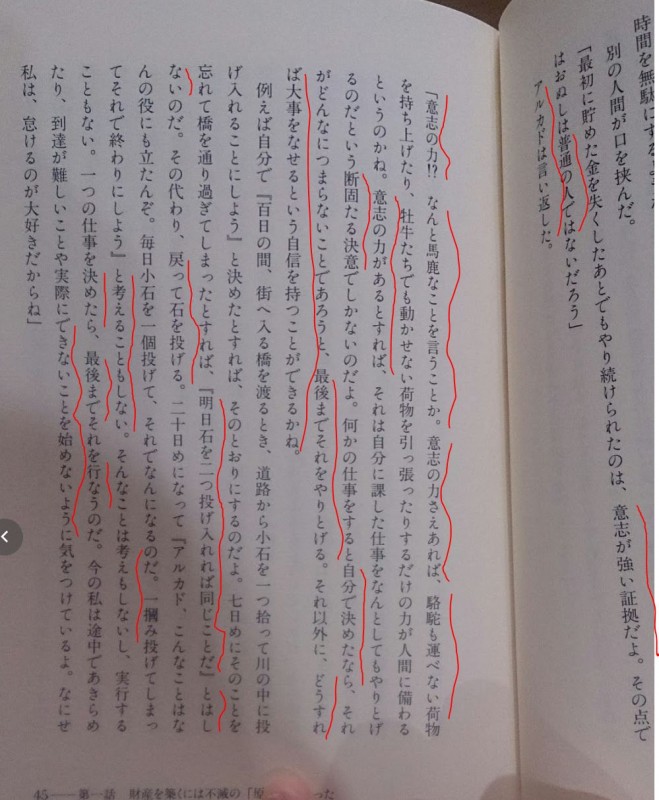 時間を無駄にする。
別の人間が口を挟んだ。
「最初に貯めた金を失くしたあとでもやり続けられたのは、意志が強い証拠だよ。その点で
はおぬしは普通の人ではないだろう」
アルカドは言い返した。
「意志の力!? なんと馬鹿なことを言うことか。意志の力さえあれば、駱駝も運べない荷物
を持ち上げたり、牡牛たちでも動かせない荷物を引っ張ったりするだけの力が人間に備わる
というのかね。意志の力があるとすれば、それは自分に課した仕事をなんとしてもやりとげ
るのだという断固たる決意でしかないのだよ。何かの仕事をすると自分で決めたなら、それ
がどんなにつまらないことであろうと、最後までそれをやりとげる。それ以外に、どうすれ
ば大事をなせるという自信を持つことができるかね。
例えば自分で『百日の間、街へ入る橋を渡るとき、道路から小石を一つ拾って川の中に投
げ入れることにしよう』と決めたとすれば、そのとおりにするのだよ。七日めにそのことを
忘れて橋を通り過ぎてしまったとすれば、『明日石を二つ投げ入れれば同じことだ』とはし
ないのだ。その代わり、戻って石を投げる。二十日めになって『アルカド、こんなことはな
んの役にも立たんぞ。毎日小石を一個投げて、それでなんになるのだ。一摑み投げてしまっ
てそれで終わりにしよう』と考えることもしない。そんなことは考えもしないし、実行する
こともない。一つの仕事を決めたら、最後までそれを行なうのだ。今の私は途中であきらめ
たり、到達が難しいことや実際にできないことを始めないように気をつけているよ。なにせ
私は、怠けるのが大好きだからね」
45──第一話 財産を築くには不滅の「原 った